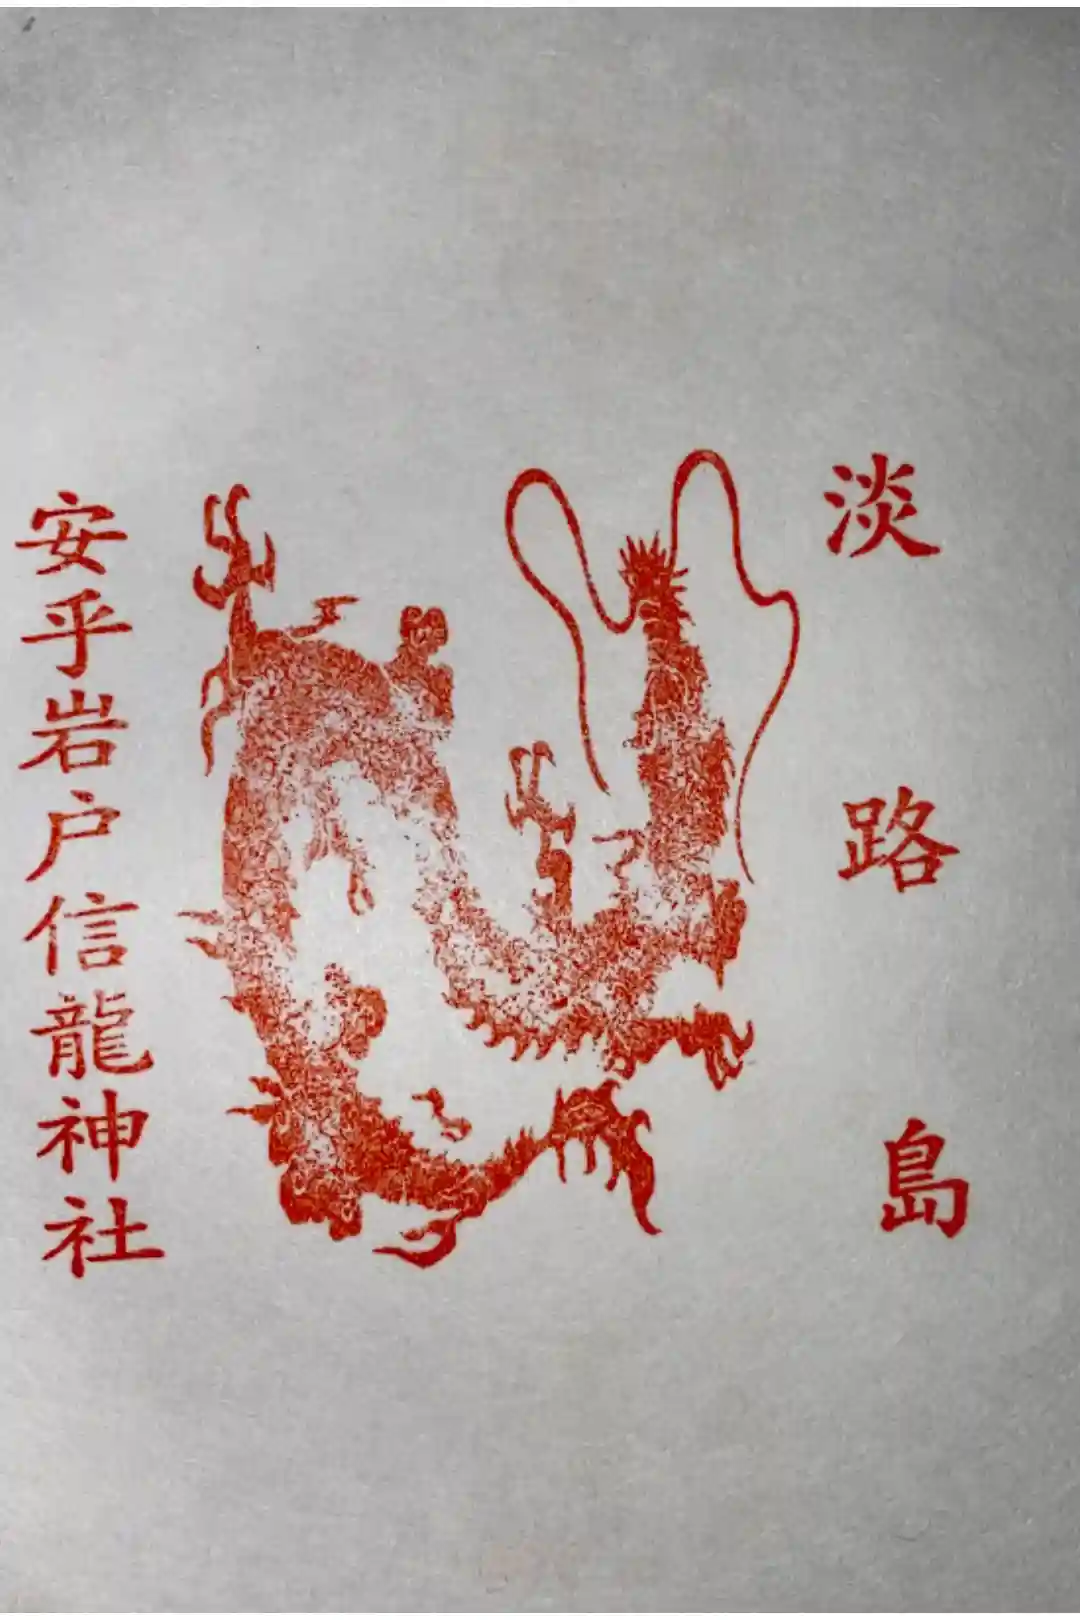 淡路島
安乎岩戸信龍神社